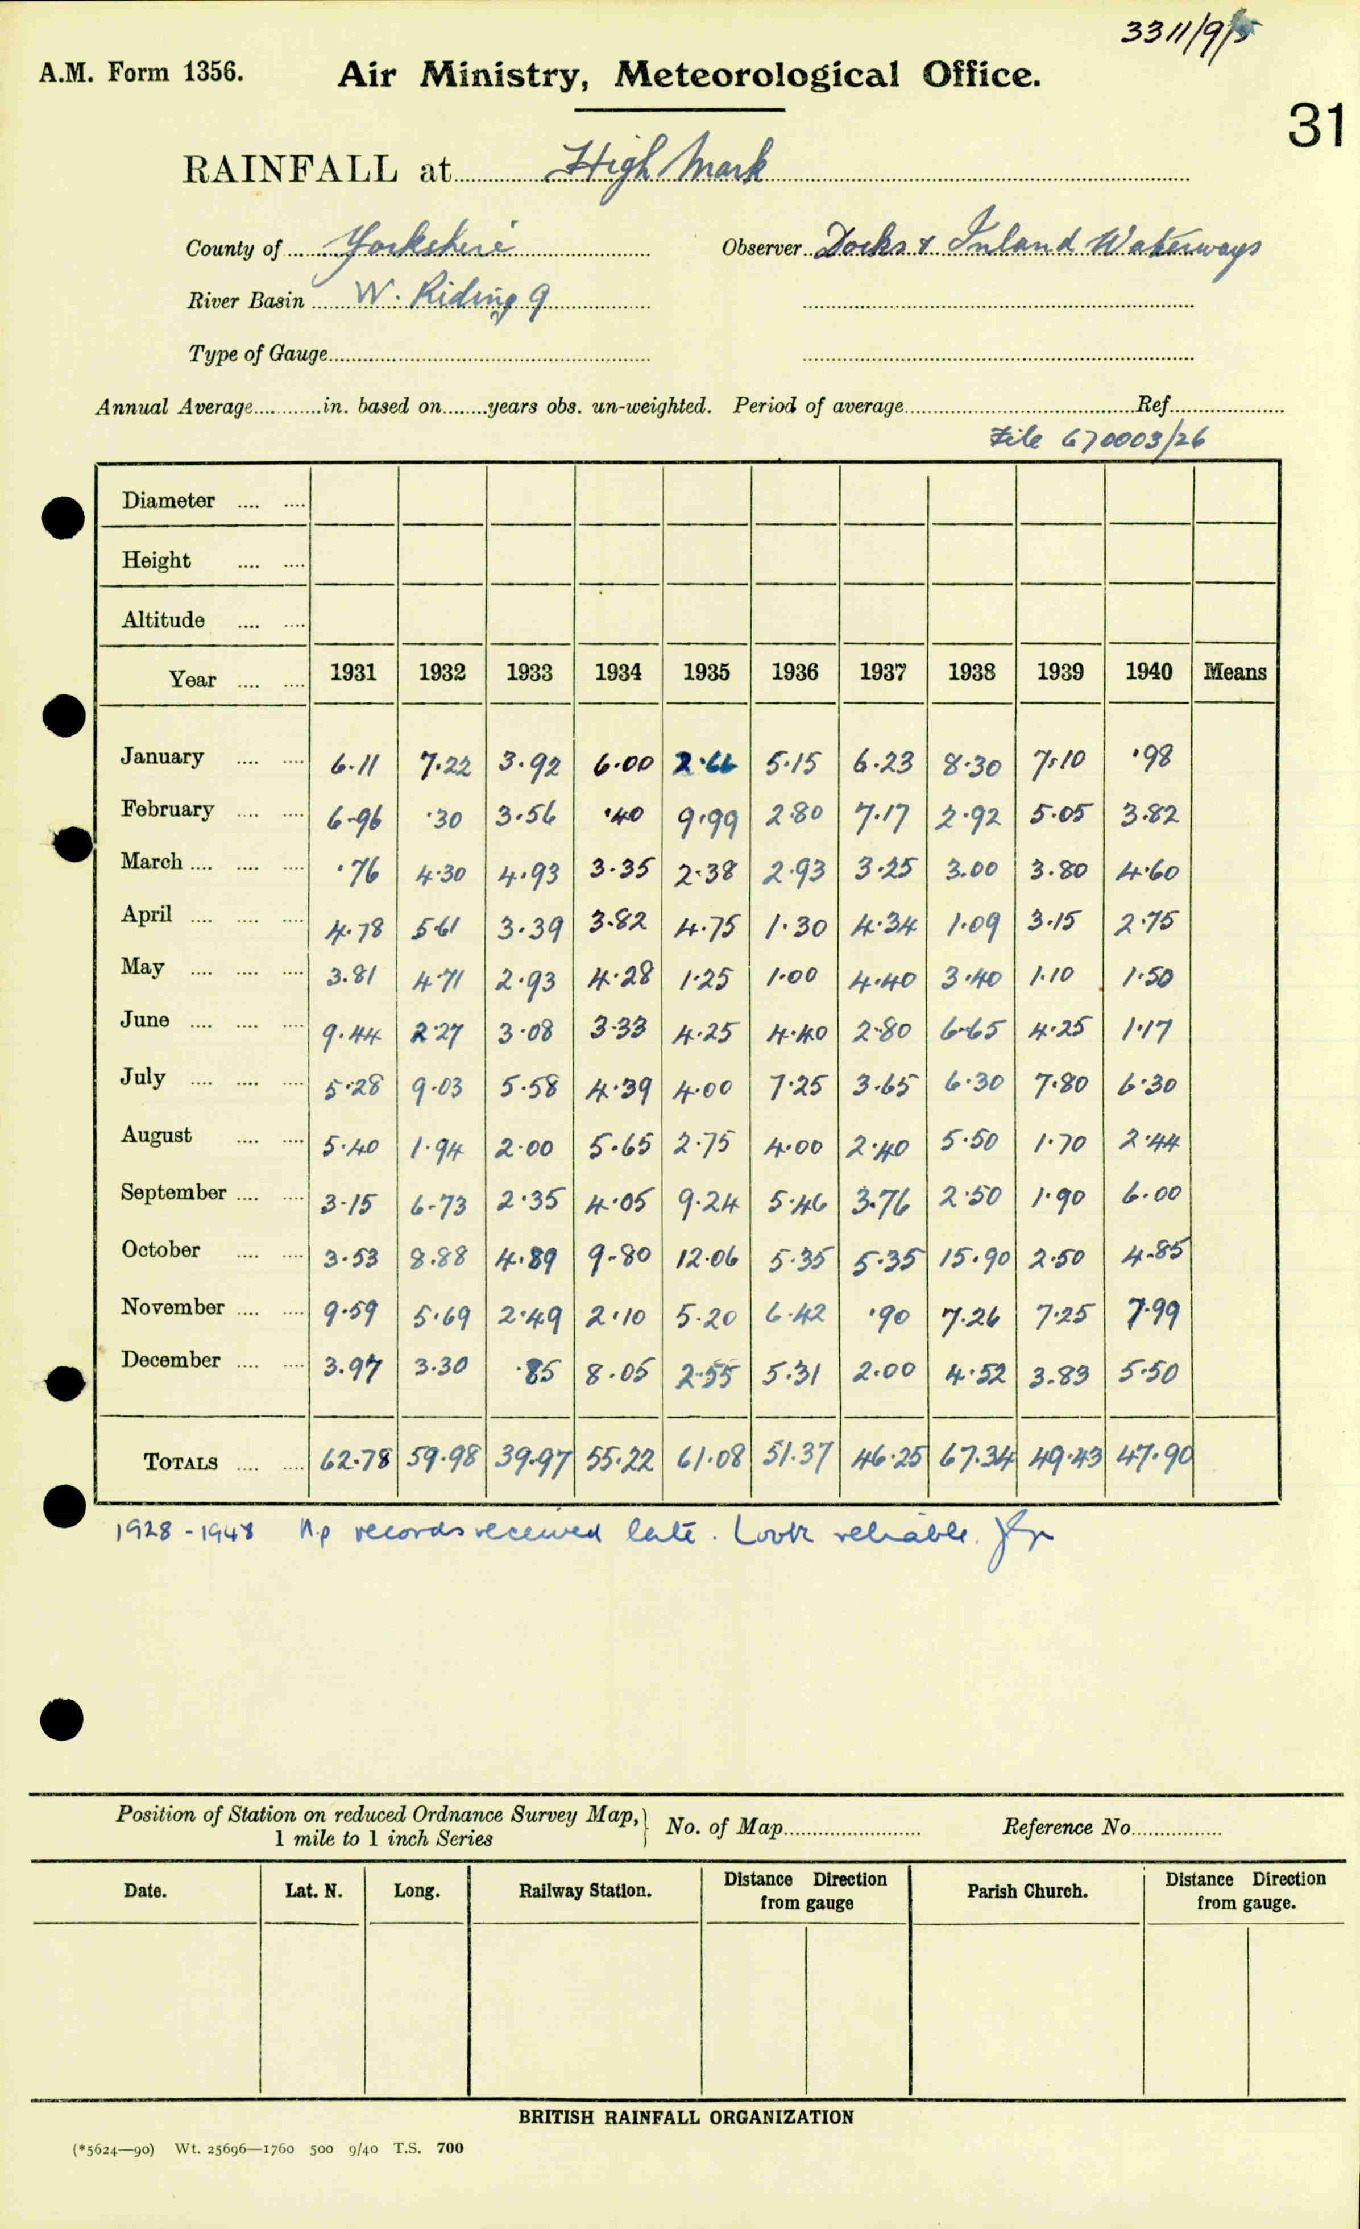 3311/9/5
A.M. Form 1356. Air Ministry, Meteorological Office.
31
RAINFALL at High Mark
County of Yorkshire Observer Docks & Inland Waterways
River Basin W. Riding 9
Type of Gauge
Annual Average in. based on years obs. un-weighted. Period of average Ref
File 670003/26
Diameter
Height
Altitude
Year 1931 1932 1933 1934 1935 1936 1937 1938 1939 1940 Means
January 6.11 7.22 3.92 6.00 2.66 5.15 6.23 8.30 7.10 .98
February 6.96 .30 3.56 .40 9.99 2.80 7.17 2.92 5.05 3.82
March .76 4.30 4.93 3.35 2.38 2.93 3.25 3.00 3.80 4.60
April 4.78 5.61 3.39 3.82 4.75 1.30 4.34 1.09 3.15 2.75
May 3.81 4.71 2.93 4.28 1.25 1.00 4.40 3.40 1.10 1.50
June 9.44 2.27 3.08 3.33 4.25 4.40 2.80 6.65 4.25 1.17
July 5.28 9.03 5.58 4.39 4.00 7.25 3.65 6.30 7.80 6.30
August 5.40 1.94 2.00 5.65 2.75 4.00 2.40 5.50 1.70 2.44
September 3.15 6.73 2.35 4.05 9.24 5.46 3.76 2.50 1.90 6.00
October 3.53 8.88 4.89 9.80 12.06 5.35 5.35 15.90 2.50 4.85
November 9.59 5.69 2.49 2.10 5.20 6.42 .90 7.26 7.25 7.99
December 3.97 3.30 .85 8.05 2.55 5.31 2.00 4.52 3.83 5.50
TOTALS 62.78 59.98 39.97 55.22 61.08 51.37 46.25 67.34 49.43 47.90
1928-1948 records received late. Look reliable.
Position of Station on reduced Ordnance Survey Map, No. of Map Reference No
1 mile to 1 inch Series
Date. Lat. N. Long. Railway Station. Distance Direction from gauge Parish Church. Distance Direction from gauge.
BRITISH RAINFALL ORGANIZATION
(*5624—90) Wt. 25696—1760 500 9/40 T.S. 700